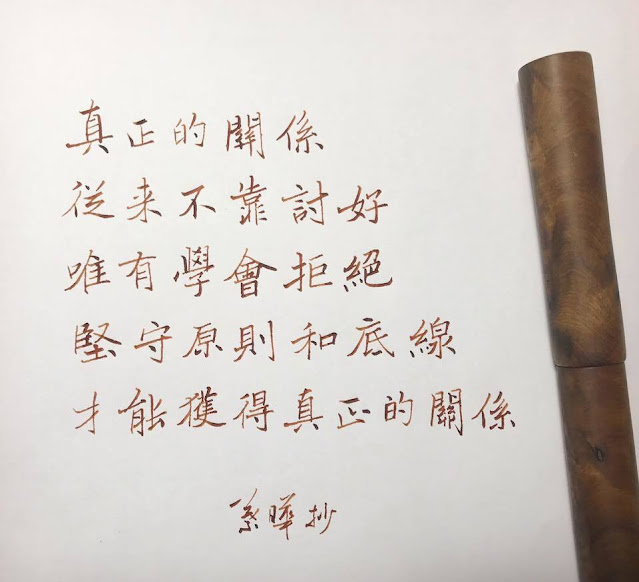 真正的關係
従来不靠討好
唯有學會拒絕
堅守原則和底線
才能獲得真正的關係
孫曄抄